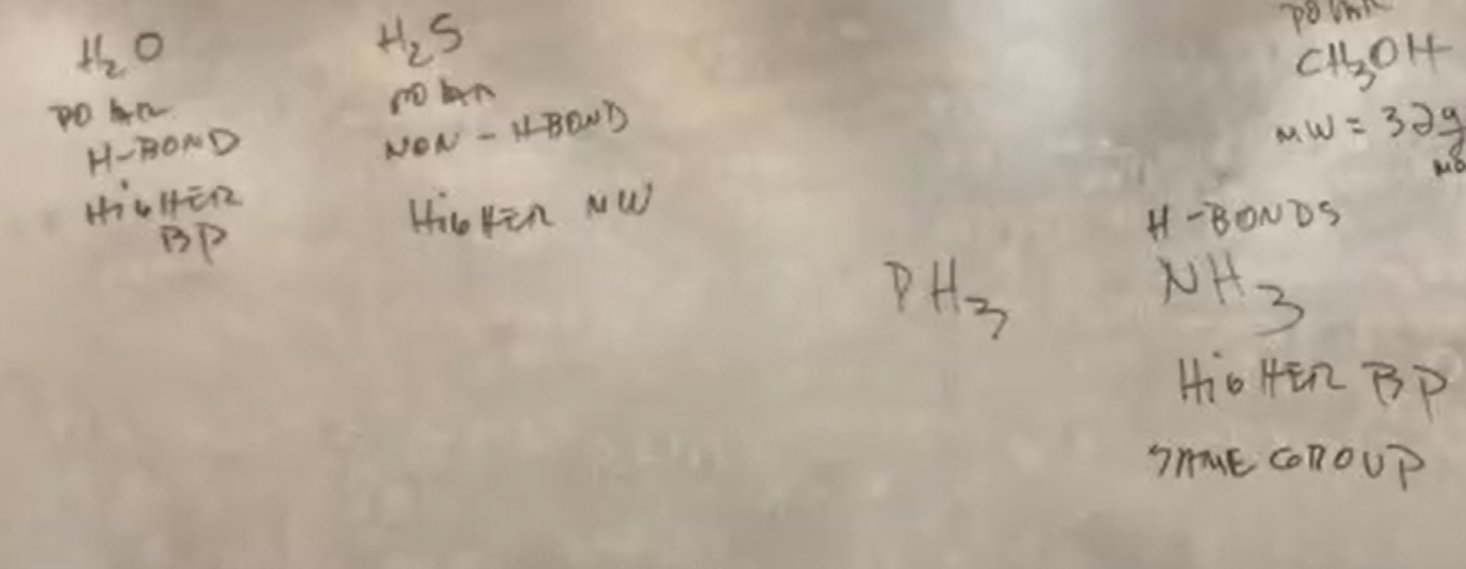 H₂O
POLAR
H-BOND
HIGHER
BP
H₂S
POLAR
NON-H-BOND
HIGHER MW
POLAR
CH₃OH
MW = 32g
PH₃
H-BONDS
NH₃
HIGHER BP
SAME GROUP